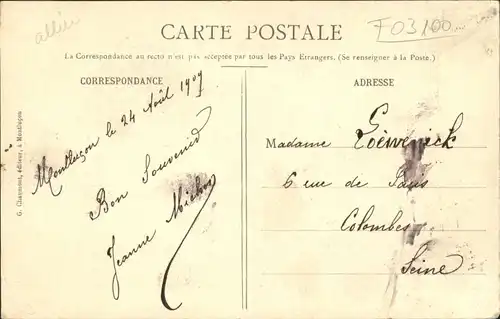 allier
CARTE POSTALE
F03100
La Correspondance au recto n'est pas acceptée par tous les Pays Etrangers. (Se renseigner à la Poste.)
CORRESPONDANCE
Montluçon le 24 Août 1909
Bon Souvenir
Jeanne Michon
G. Chaumont, éditeur, à Montluçon
ADRESSE
Madame Loëwenick
6 rue de Paris
Colombes
Seine